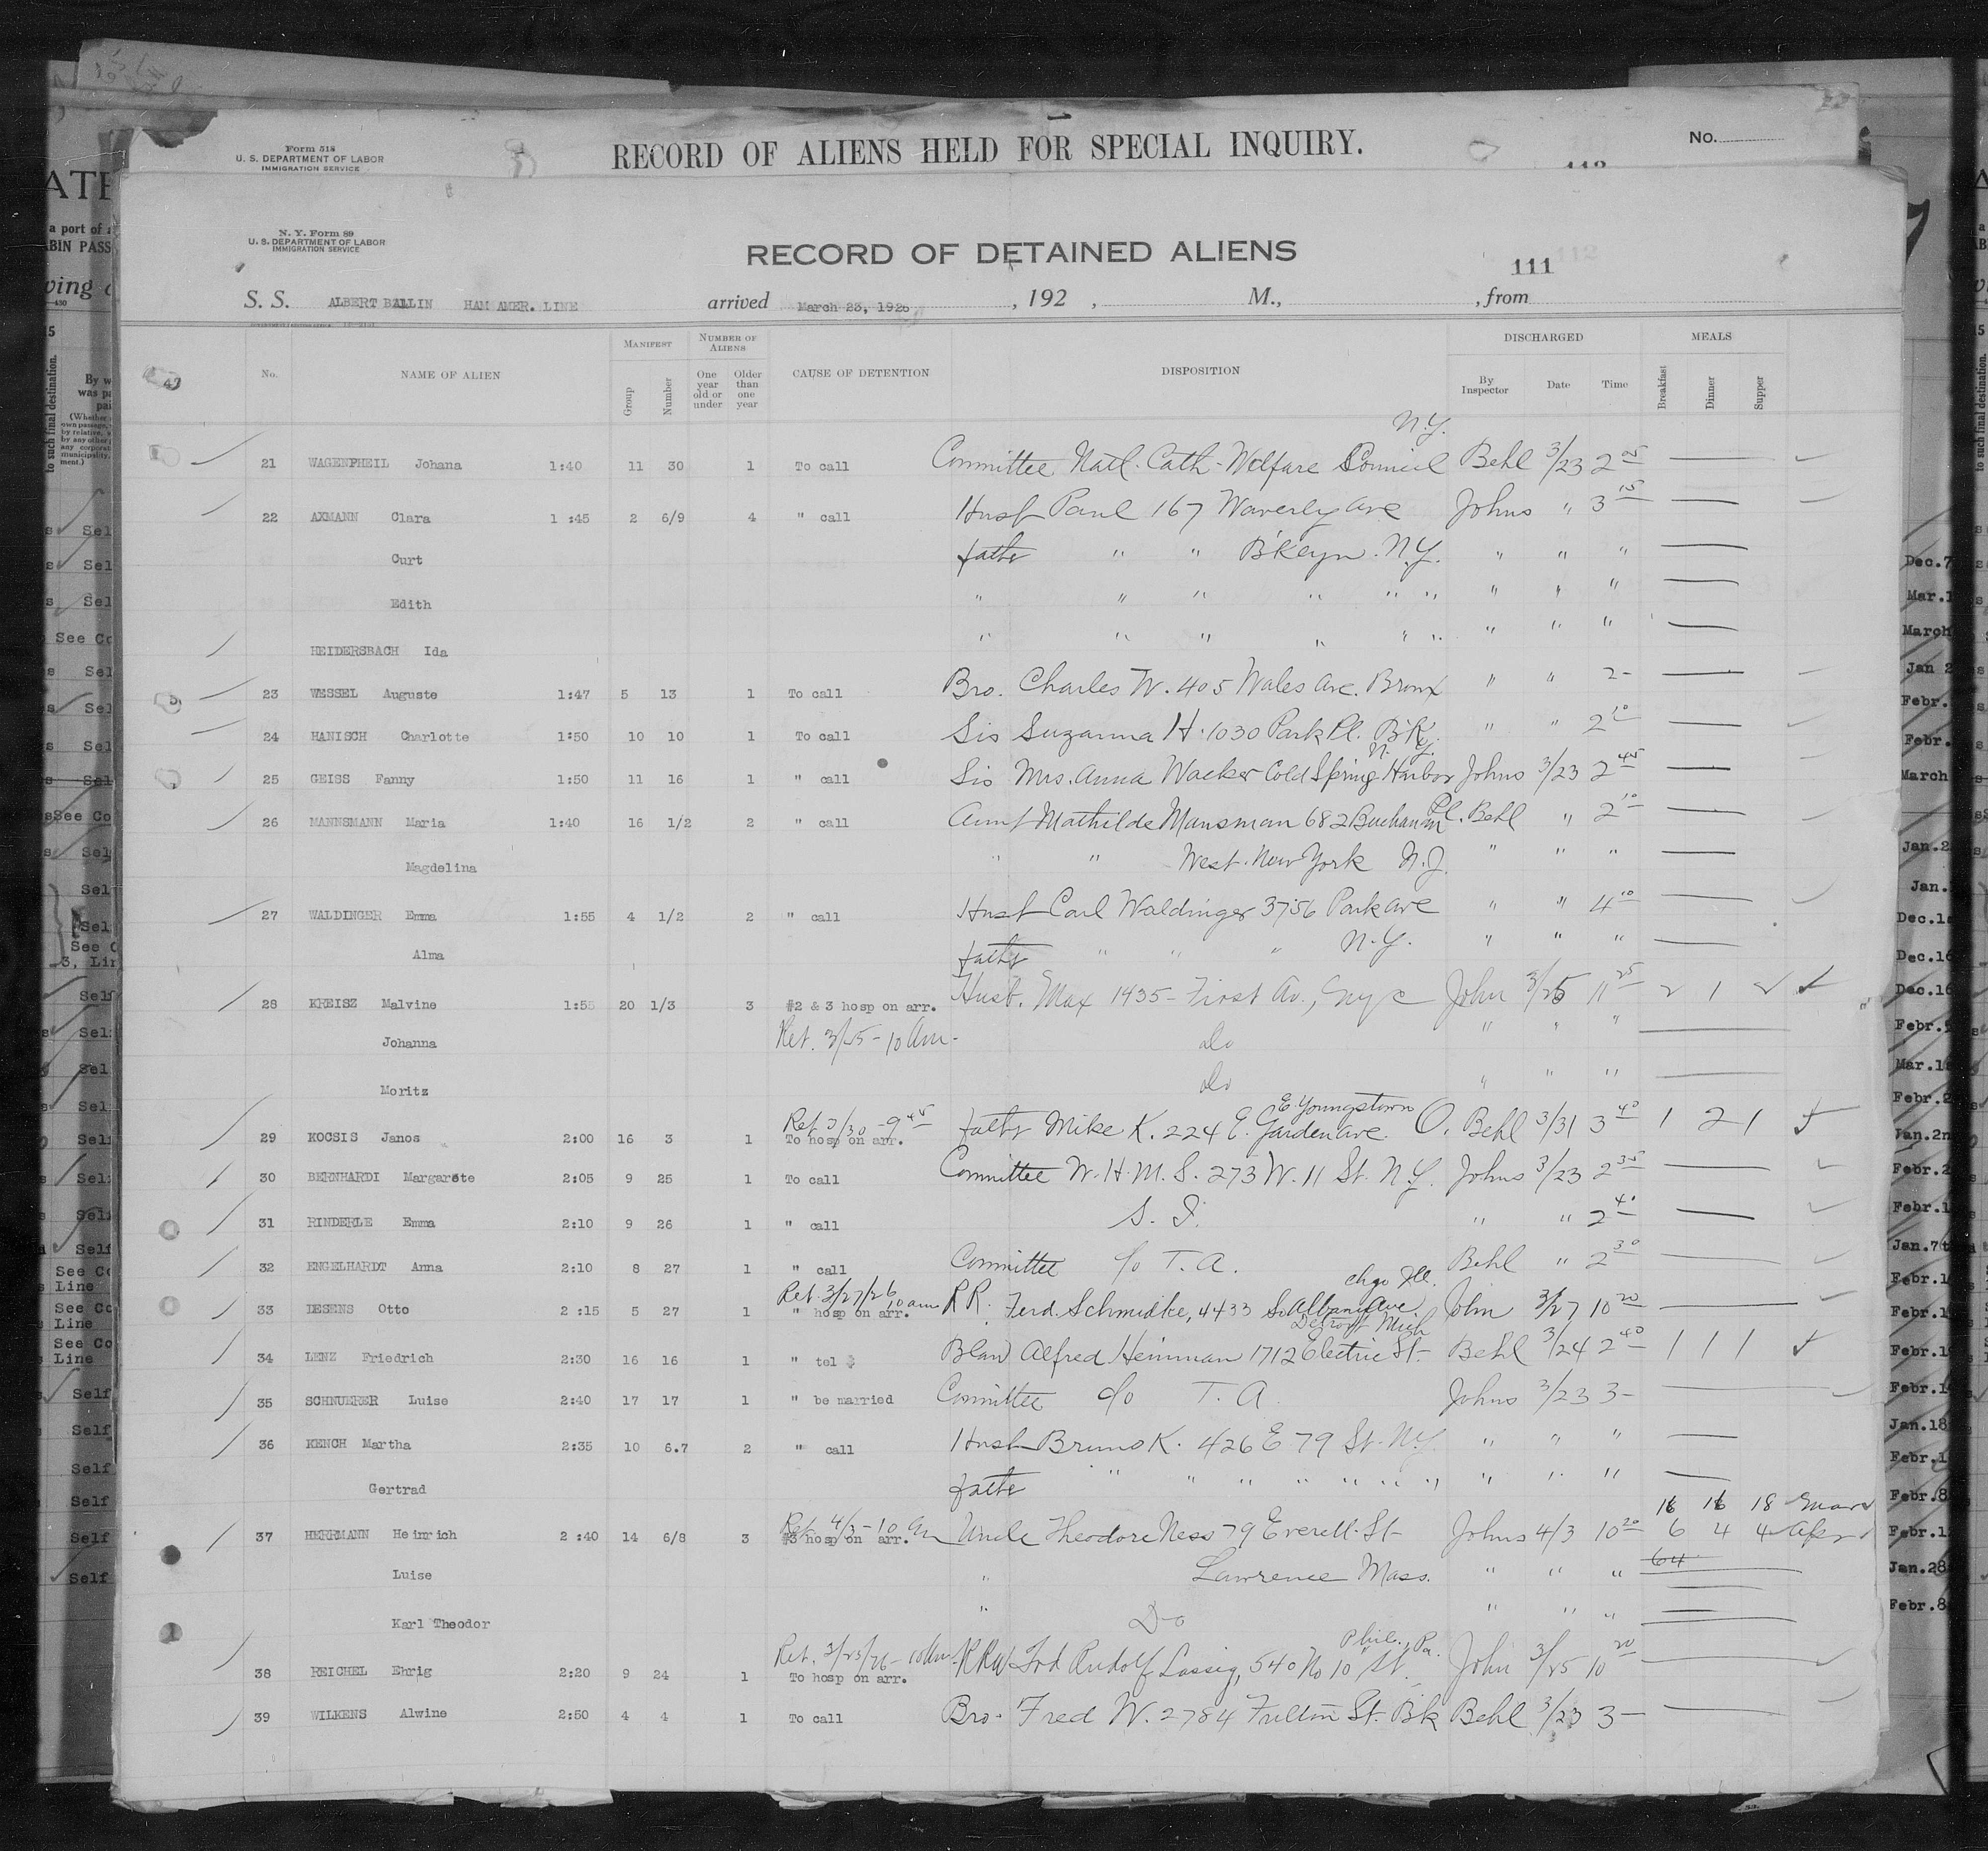 Form 518
U. S. DEPARTMENT OF LABOR
IMMIGRATION SERVICE
RECORD OF ALIENS HELD FOR SPECIAL INQUIRY.
No.
N. Y. Form 89
U. S. DEPARTMENT OF LABOR
IMMIGRATION SERVICE
RECORD OF DETAINED ALIENS
111
S. S. ALBERT BALLIN HAM AMER. LINE arrived March 23, 1926, 192 , M., , from
No. NAME OF ALIEN MANIFEST Group Number NUMBER OF ALIENS One year old or under Older than one year CAUSE OF DETENTION DISPOSITION DISCHARGED By Inspector Date Time MEALS Breakfast Dinner Supper
N.Y.
21 WAGENPHEIL Johana 1:40 11 30 1 To call Committee Natl. Cath. Welfare Council Behl 3/23 2
22 AXMANN Clara 1 :45 2 6/9 4 " call Husb Paul 167 Waverly Ave Johns " 3 15
Curt father " " B'klyn. N.Y. " " "
Edith " " " " " " " " "
HEIDERSBACH Ida " " " " " " " " "
23 WESSEL Auguste 1:47 5 13 1 To call Bro. Charles W. 405 Wales Ave. Bronx " " 2-
24 HANISCH Charlotte 1:50 10 10 1 To call Sis Suzanna H. 1030 Park Pl. B'K " " 2 10
N.Y.
25 GEISS Fanny 1:50 11 16 1 " call Sis Mrs. Anna Wacker Cold Spring Harbor Johns 3/23 2 45
26 MANNSMANN Maria 1:40 16 1/2 2 " call Aunt Mathilde Mansman 682 Buchanan Pl. Behl " 2 10
Magdelina " " West New York N.J. " " "
27 WALDINGER Emma 1:55 4 1/2 2 " call Husb Carl Waldinger 3756 Park Ave " " 4 10
Alma father " " " N.Y. " " "
28 KREISZ Malvine 1:55 20 1/3 3 #2 & 3 hosp on arr. Husb. Max 1435 - First Av., Nyc John 3/26 11 25 2 1 2
Johanna Ret. 3/25 - 10 Am - do " " "
Moritz do " " "
Ret 3/30 - 9 45 E. Youngstown
29 KOCSIS Janos 2:00 16 3 1 To hosp on arr. father Mike K. 224 E. Garden Ave. O. Behl 3/31 3 40 1 2 1
30 BERNHARDI Margarete 2:05 9 25 1 To call Committee W. H. M. S. 273 W. 11 St. N.Y. Johns 3/23 2 35
31 RINDERLE Emma 2:10 9 26 1 " call S. I. " " 2 40
32 ENGELHARDT Anna 2:10 8 27 1 " call Committee c/o T. A. Behl " 2 30
Ret. 3/27/26 10 am chgo Ill.
33 DESENS Otto 2 :15 5 27 1 " hosp on arr. RR. Ferd. Schmidke, 4433 So Albany Ave. John 3/27 10 20
Detroit Mich
34 LENZ Friedrich 2:30 16 16 1 " tel $ Blaw Alfred Heinman 1712 Electric St. Behl 3/24 2 40 1 1 1
35 SCHNUERER Luise 2:40 17 17 1 " be married Committee c/o T. A. Johns 3/23 3-
36 KENCH Martha 2:35 10 6.7 2 " call Husb Bruno K. 426 E 79 St. N.Y. " " "
Gertrad father " " " " " " " " " "
Ret. 4/3 - 10 am 16 16 18 Mar
37 HERRMANN Heinrich 2 :40 14 6/8 3 #3 hosp on arr. Uncle Theodore Ness 79 Everett St Johns 4/3 10 20 6 4 4 Apr
64
Luise " Lawrence Mass. " " "
Karl Theodor " Do " " "
Ret. 3/25/26 - 10 Am Phil., Pa.
38 REICHEL Ehrig 2:20 9 24 1 To hosp on arr. Frd Rudolf Lassig, 540 No 10" St. John 3/25 10 20
39 WILKENS Alwine 2:50 4 4 1 To call Bro. Fred W. 2784 Fulton St. Bk Behl 3/23 3-